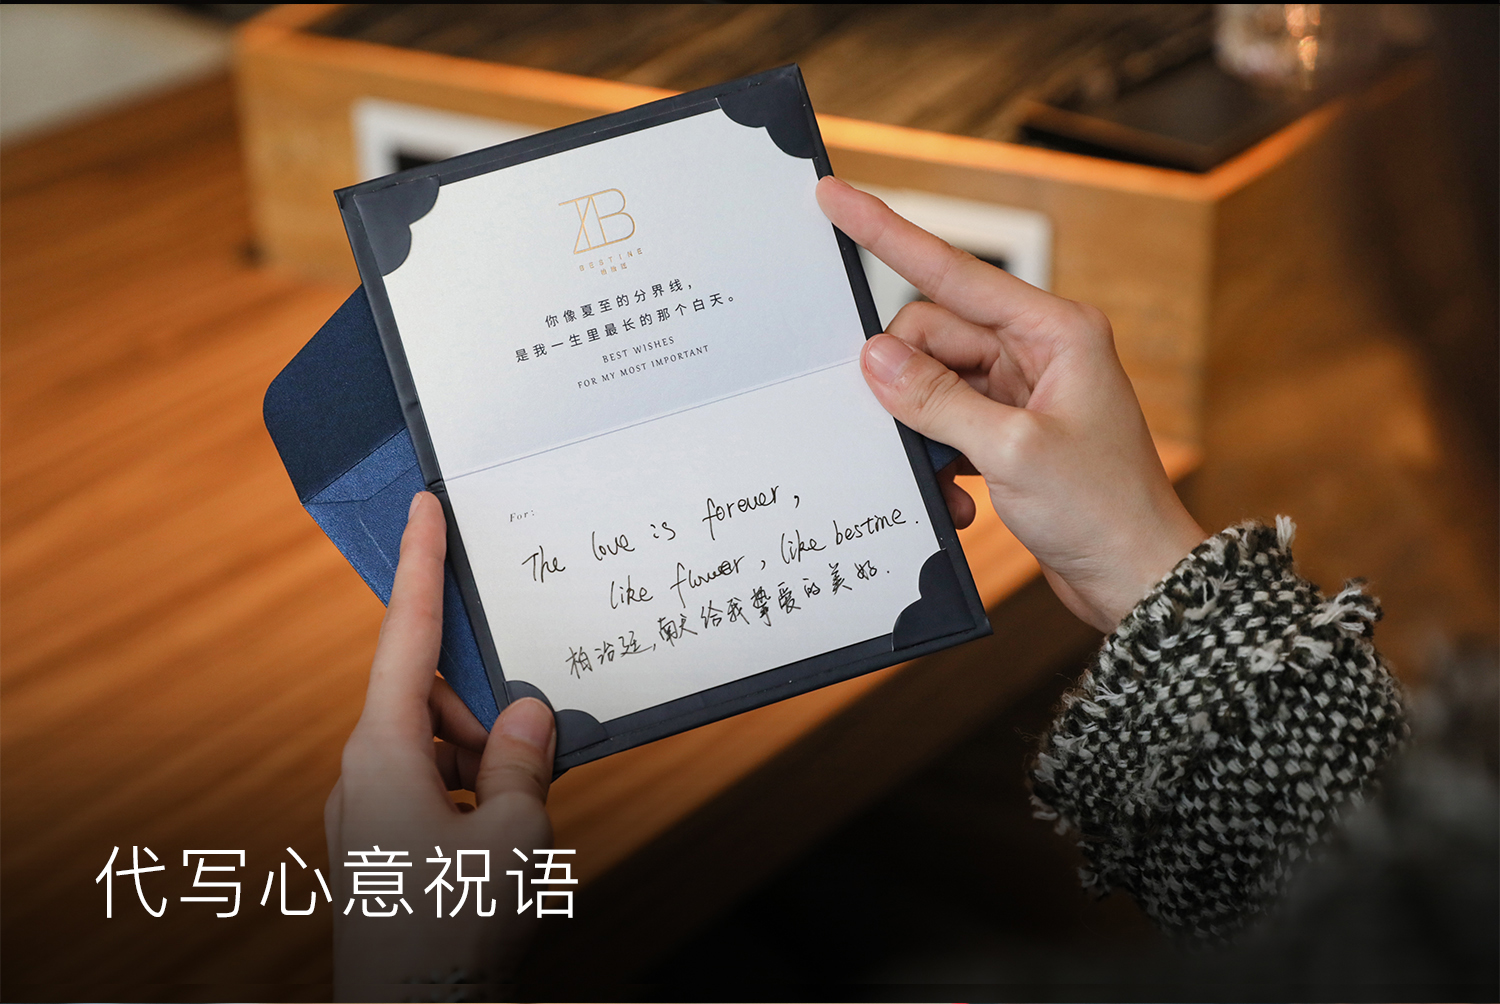 BESTINE
柏诗廷
你像夏至的分界线，
是我一生里最长的那个白天。
BEST WISHES
FOR MY MOST IMPORTANT
For:
The love is forever,
like flower, like bestine.
柏诗廷,献给我挚爱的美好.
代写心意祝语